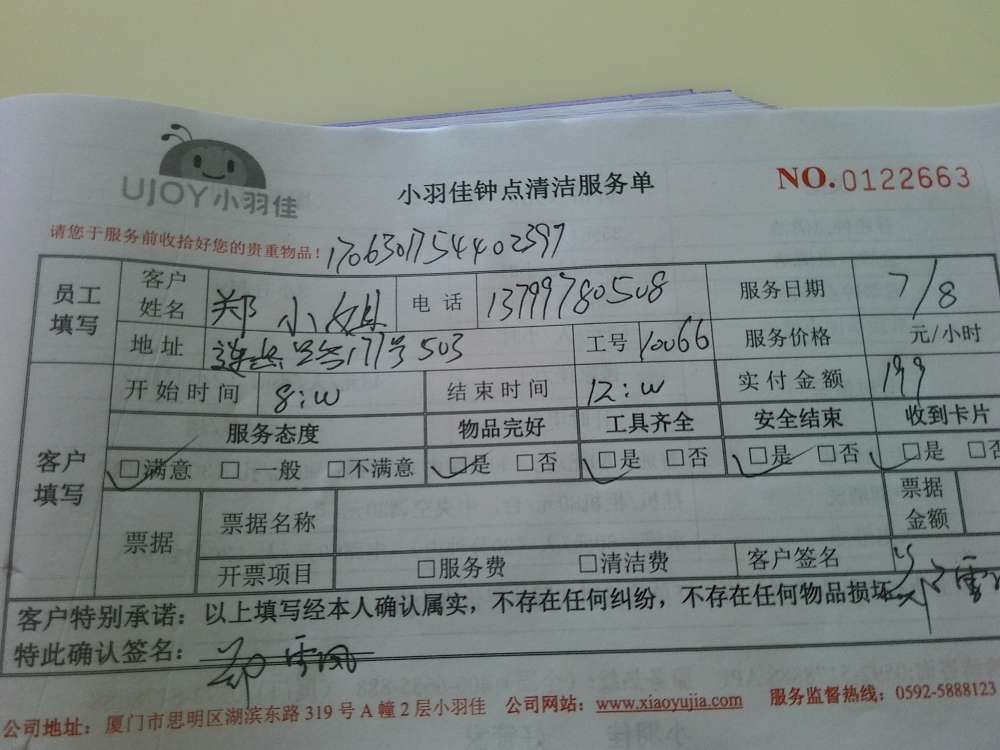 UJOY小羽佳
小羽佳钟点清洁服务单
NO.0122663
请您于服务前收拾好您的贵重物品!
1706301754402397
员工填写 客户姓名 郑小姐 电话 13799780508 服务日期 7/8
地址 177号503 工号 10066 服务价格 元/小时
客户填写 开始时间 8: 结束时间 12: 实付金额 199
服务态度 物品完好 工具齐全 安全结束 收到卡片
□满意 □一般 □不满意 □是 □否 □是 □否 □是 □否 □是 □否
票据 票据名称 票据金额
开票项目 □服务费 □清洁费 客户签名
客户特别承诺：以上填写经本人确认属实，不存在任何纠纷，不存在任何物品损坏
特此确认签名：
公司地址：厦门市思明区湖滨东路319号A幢2层小羽佳 公司网站：www.xiaoyujia.com 服务监督热线：0592-5888123